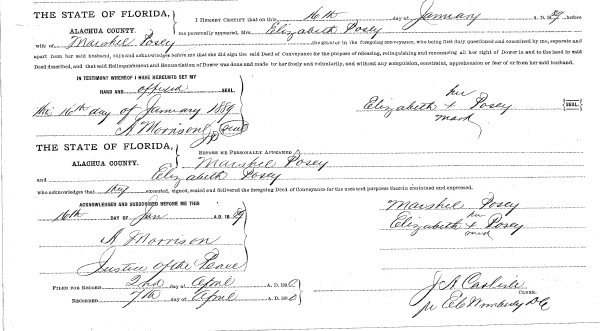 THE STATE OF FLORIDA,
ALACHUA COUNTY.
I HEREBY CERTIFY that on this 16th day of January A. D. 1889 before
me personally appeared, Mrs. Elizabeth Posey
wife of Marshel Posey the grantor in the foregoing conveyance, who being thus duly questioned and examined by me, separate and
apart from her said husband, says and acknowledges before me that she did sign the said Deed of Conveyance for the purpose of releasing, relinquishing and renouncing all her right of Dower in and to the land in said
Deed described, and that said Relinquishment and Renunciation of Dower was done and made by her freely and voluntarily, and without any compulsion, constraint, apprehension or fear of or from her said husband.
IN TESTIMONY WHEREOF I HAVE HEREUNTO SET MY
HAND AND affixed SEAL
this 16th day of January 1889
A Morrison JP Seal
her
Elizabeth + Posey SEAL
mark
THE STATE OF FLORIDA,
ALACHUA COUNTY.
BEFORE ME PERSONALLY APPEARED
Marshel Posey
and Elizabeth Posey
who acknowledges that they executed, signed, sealed and delivered the foregoing Deed of Conveyance for the uses and purposes therein contained and expressed.
ACKNOWLEDGED AND SUBSCRIBED BEFORE ME THIS
16th DAY OF Jan A. D. 1889
A Morrison
Justice of the Peace
Marshel Posey
her
Elizabeth + Posey
mark
FILED FOR RECORD 2nd day of April A. D. 1890
RECORDED 7th day of April A. D. 1890
J A Carlisle
CLERK.
pr
D C